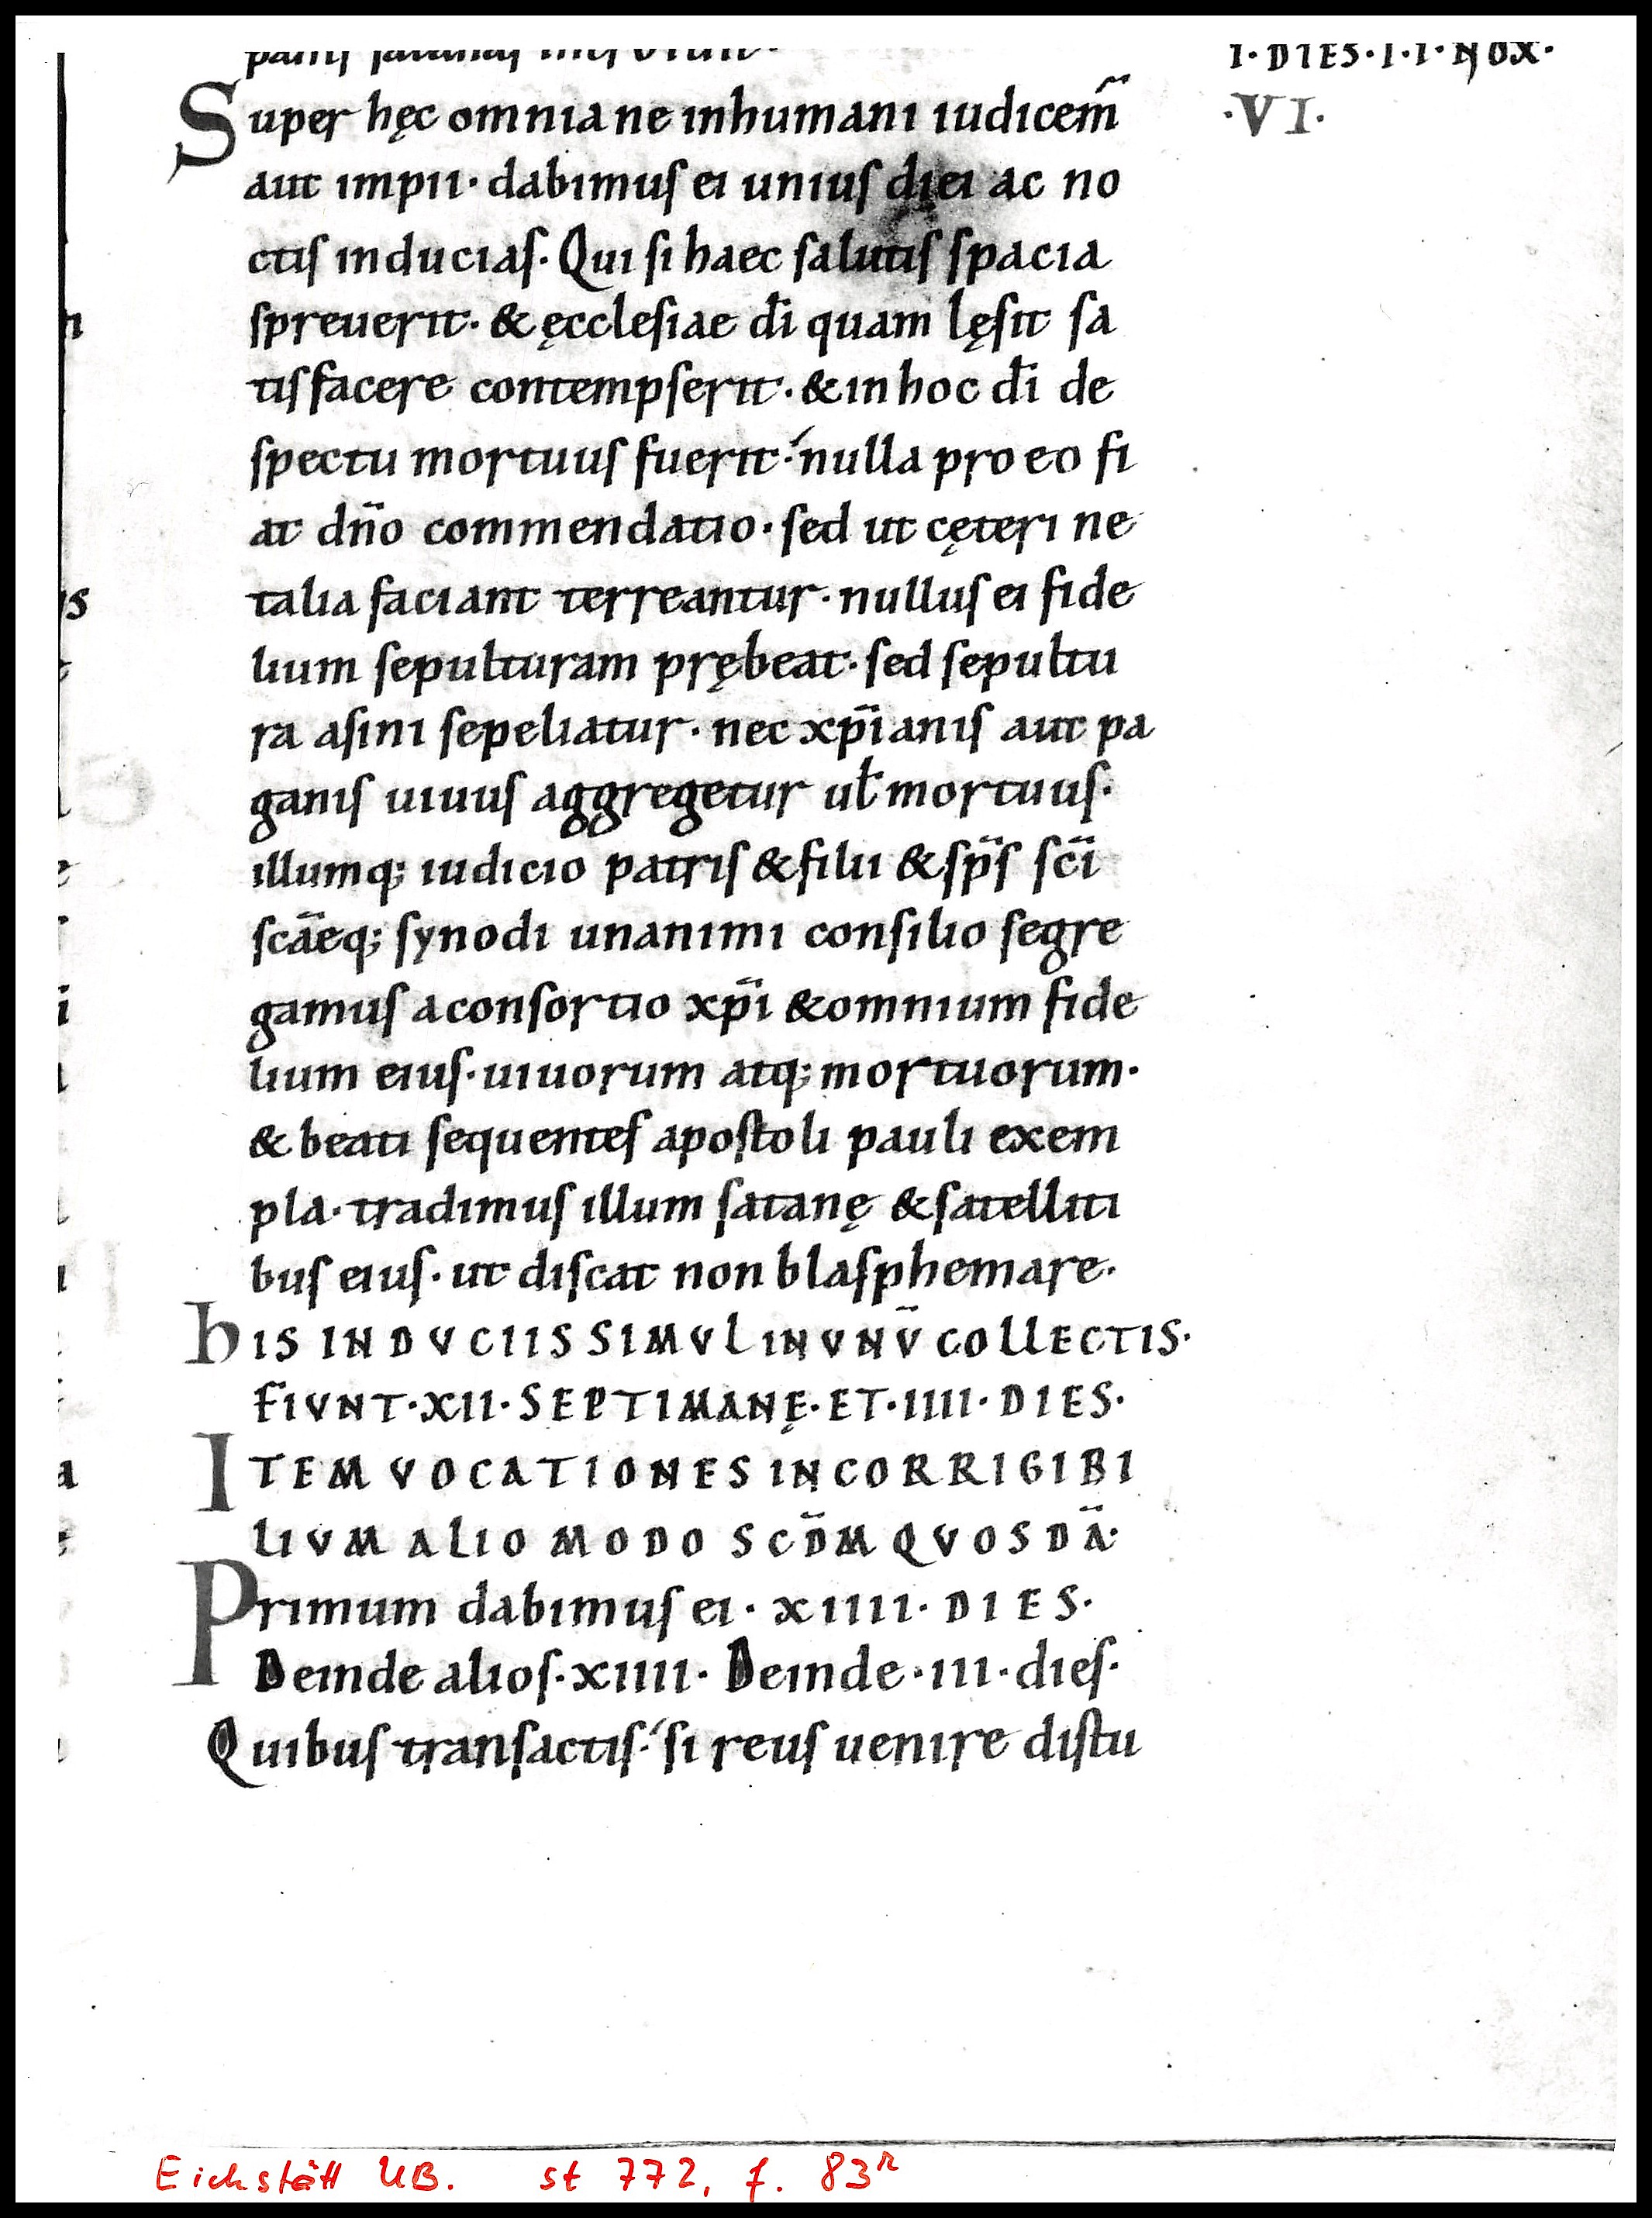 I· DIES· I· I· NOX·
·VI·
Super hęc omnia ne inhumani iudicem̄
aut impii· dabimuſ ei uniuſ diei ac no
ctiſ induciaſ· Qui ſi haec ſalutiſ ſpacia
ſpreuerit· & ęccleſiae dī quam lęſit ſa
tiſfacere contempſerit· & in hoc dī de
ſpectu mortuuſ fuerit· nulla pro eo fi
at dn̄o commendatio· ſed ut cęteri ne
talia faciant terreantur· nulluſ ei fide
lium ſepulturam prębeat· ſed ſepultu
ra aſini ſepeliatur· nec xp̄ianiſ aut pa
ganiſ uiuuſ aggregetur ul̄ mortuuſ·
illumq; iudicio patriſ & filii & ſp̄ſ ſc̄i
ſcāeq; ſynodi unanimi conſilio ſegre
gamuſ a conſortio xp̄i & omnium fide
lium eiuſ· uiuorum atq; mortuorum·
& beati ſequenteſ apoſtoli pauli exem
pla· tradimuſ illum ſatanę & ſatelliti
buſ eiuſ· ut diſcat non blaſphemare·
hIS INDVCIIS SIMVL IN VNV̄ COLLECTIS·
FIVNT· XII· SEPTIMANĘ· ET· IIII· DIES·
ITEM VOCATIONES INCORRIGIBI
LIVM ALIO MODO SCD̄M QVOSDĀ·
Primum dabimuſ ei· XIIII· DIES·
Deinde alioſ· XIIII· Deinde· III· dieſ·
Quibuſ tranſactiſ· ſi reuſ uenire diſtu
Eichstätt UB. st 772, f. 83r